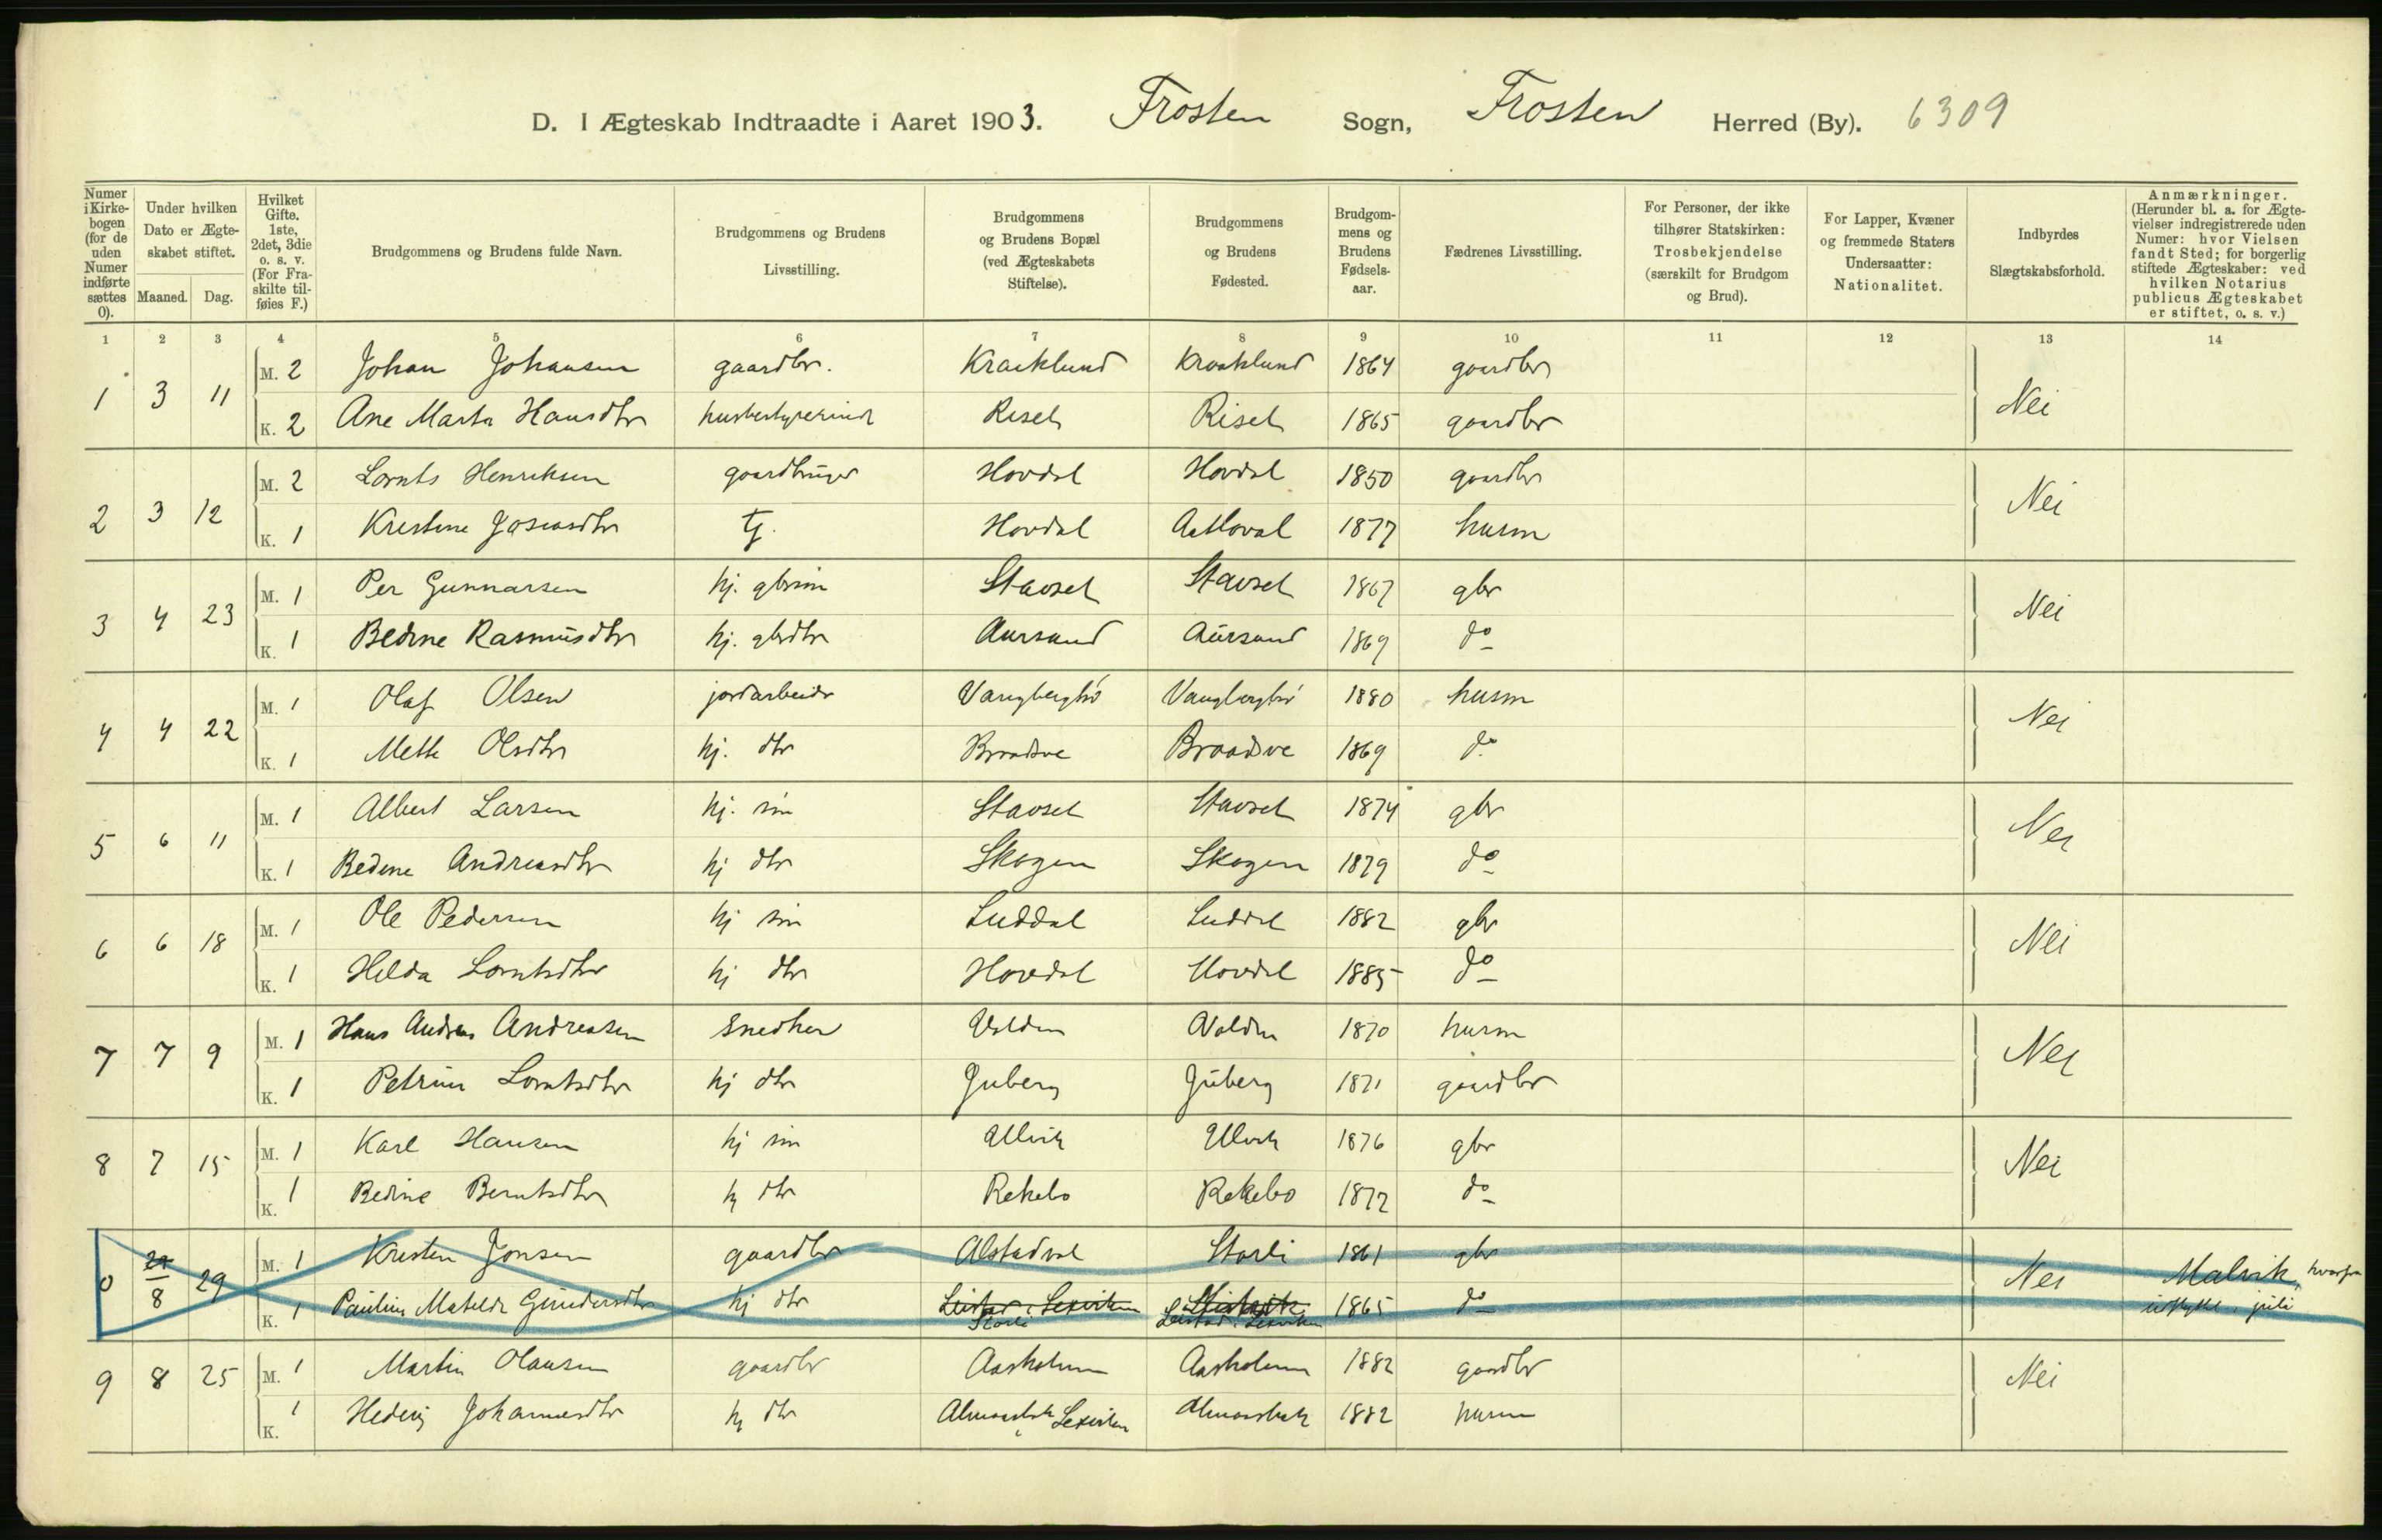 D. I Ægteskab Indtraadte i Aaret 1903. Frosten Sogn, Frosten Herred (By). 6309
Numer i Kirkebogen (for de uden Numer indførte sættes 0).
Under hvilken Dato er Ægteskabet stiftet.
Maaned. Dag.
Hvilket Gifte. 1ste, 2det, 3die o. s. v. (For Fraskilte tilføies F.)
Brudgommens og Brudens fulde Navn.
Brudgommens og Brudens Livsstilling.
Brudgommens og Brudens Bopæl (ved Ægteskabets Stiftelse).
Brudgommens og Brudens Fødested.
Brudgommens og Brudens Fødselsaar.
Fædrenes Livsstilling.
For Personer, der ikke tilhører Statskirken: Trosbekjendelse (særskilt for Brudgom og Brud).
For Lapper, Kvæner og fremmede Staters Undersaatter: Nationalitet.
Indbyrdes Slægtskabsforhold.
Anmærkninger. (Herunder bl. a. for Ægtevielser indregistrerede uden Numer: hvor Vielsen fandt Sted; for borgerlig stiftede Ægteskaber: ved hvilken Notarius publicus Ægteskabet er stiftet, o. s. v.)
1 2 3 4 5 6 7 8 9 10 11 12 13 14
1 3 11 M. 2 Johan Johansen gaardbr. Kraaklund Kraaklund 1864 gaardbr Nei
K. 2 Ane Marta Hansdtr husbestyrerinde Risel Risel 1865 gaardbr
2 3 12 M. 2 Lornts Henriksen gaardbruger Hovdal Hovdal 1850 gaardbr Nei
K. 1 Kristine Josiasdtr tj. Hovdal 1877 husm
3 4 23 M. 1 Per Gunnarsen hj. gbrsøn Stavset Stavset 1867 gbr Nei
K. 1 Bedine Rasmusdtr hj. gbrdtr Aursand Aursand 1869 do
4 4 22 M. 1 Olaf Olsen jordarbeider 1880 husm Nei
K. 1 Mette Olsdtr hj. dtr Braadsve Braadsve 1869 do
5 6 11 M. 1 Albert Larsen hj. søn Stavset Stavset 1874 gbr Nei
K. 1 Bedine Andreasdtr hj dtr Skogen Skogen 1879 do
6 6 18 M. 1 Ole Pedersen hj søn Luddal Luddal 1882 gbr Nei
K. 1 Hilda Lorntsdtr hj dtr Hovdal Hovdal 1885 do
7 7 9 M. 1 Hans Andreas Andreasen Snedker Valden Valden 1870 husm Nei
K. 1 Petrine Lorntsdtr hj dtr Juberg Juberg 1871 gaardbr
8 7 15 M. 1 Karl Hansen hj søn Ulvik Ulvik 1876 gbr Nei
K. 1 Bedine Berntsdtr hj dtr Rekebo Rekebo 1872 do
0 29 8 29 M. 1 Kristen Jonsen gaardbr Alstadval Storli 1861 gbr Nei Malvik, hvorfra
K. 1 Pauline Matilde Gundersdtr hj dtr Leistad i Leksviken 1865 do udflyttet i juli
Storli Leistad i Leksviken
9 8 25 M. 1 Martin Olausen gaardbr Aasholmen Aasholmen 1882 gaardbr Nei
K. 1 Hedvig Johannesdtr hj dtr Leksviken 1882 husm